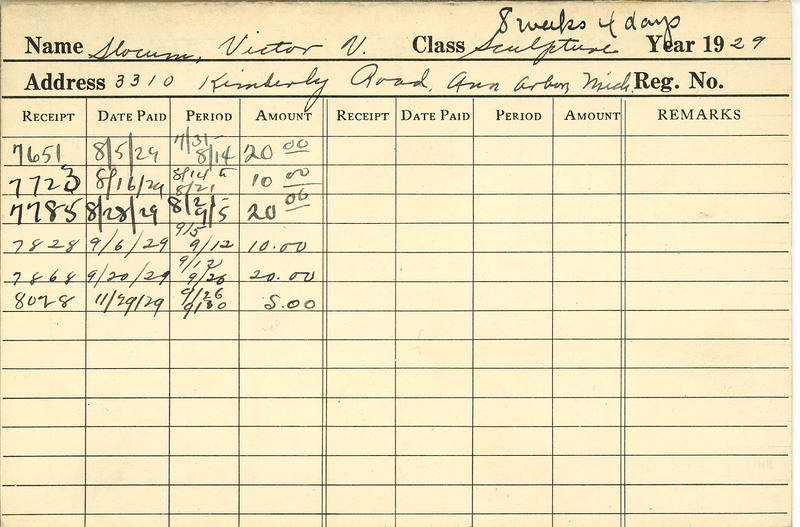 8 weeks 4 days
Name Slocum, Victor V. Class Sculpture Year 1929
Address 3310 Kimberly Road, Ann Arbor, Mich. Reg. No.
RECEIPT DATE PAID PERIOD AMOUNT RECEIPT DATE PAID PERIOD AMOUNT REMARKS
7651 8/5/29 7/31- 8/14 20 00
7723 8/16/29 8/14 to 8/21 10 00
7785 8/28/29 8/21- 9/5 20 00
7828 9/6/29 9/5 9/12 10.00
7868 9/20/29 9/12 9/26 20.00
8028 11/29/29 9/26 9/30 5.00